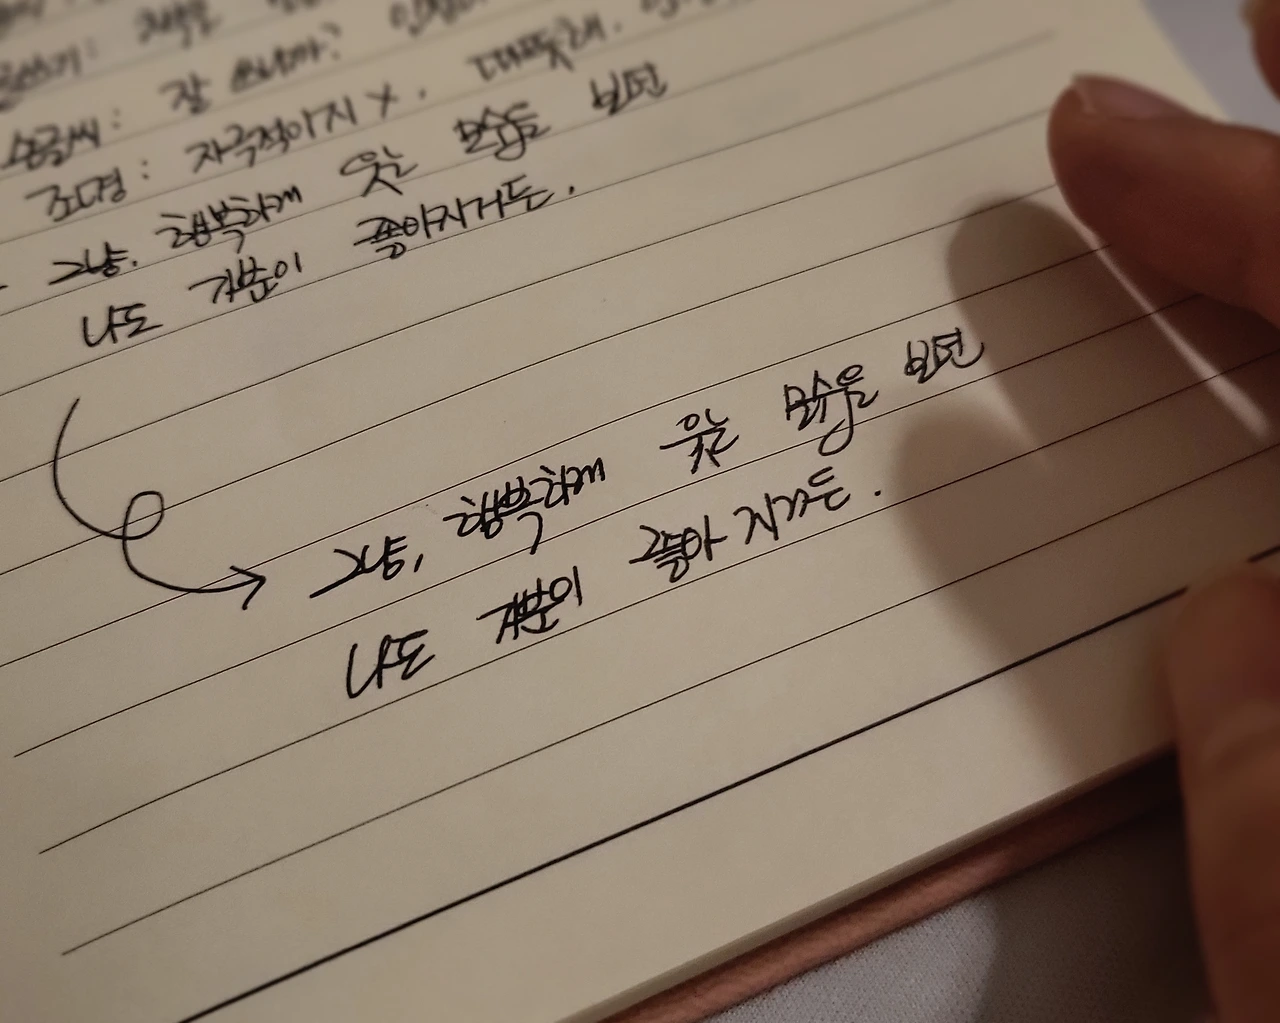 글쓰기:
손글씨: 잘 쓰니까?
조명: 자극적이지 X. 따뜻해.
그냥. 행복하게 웃는 모습을 보면
나도 기분이 좋아지거든.
그냥, 행복하게 웃는 모습을 보면
나도 기분이 좋아지거든.